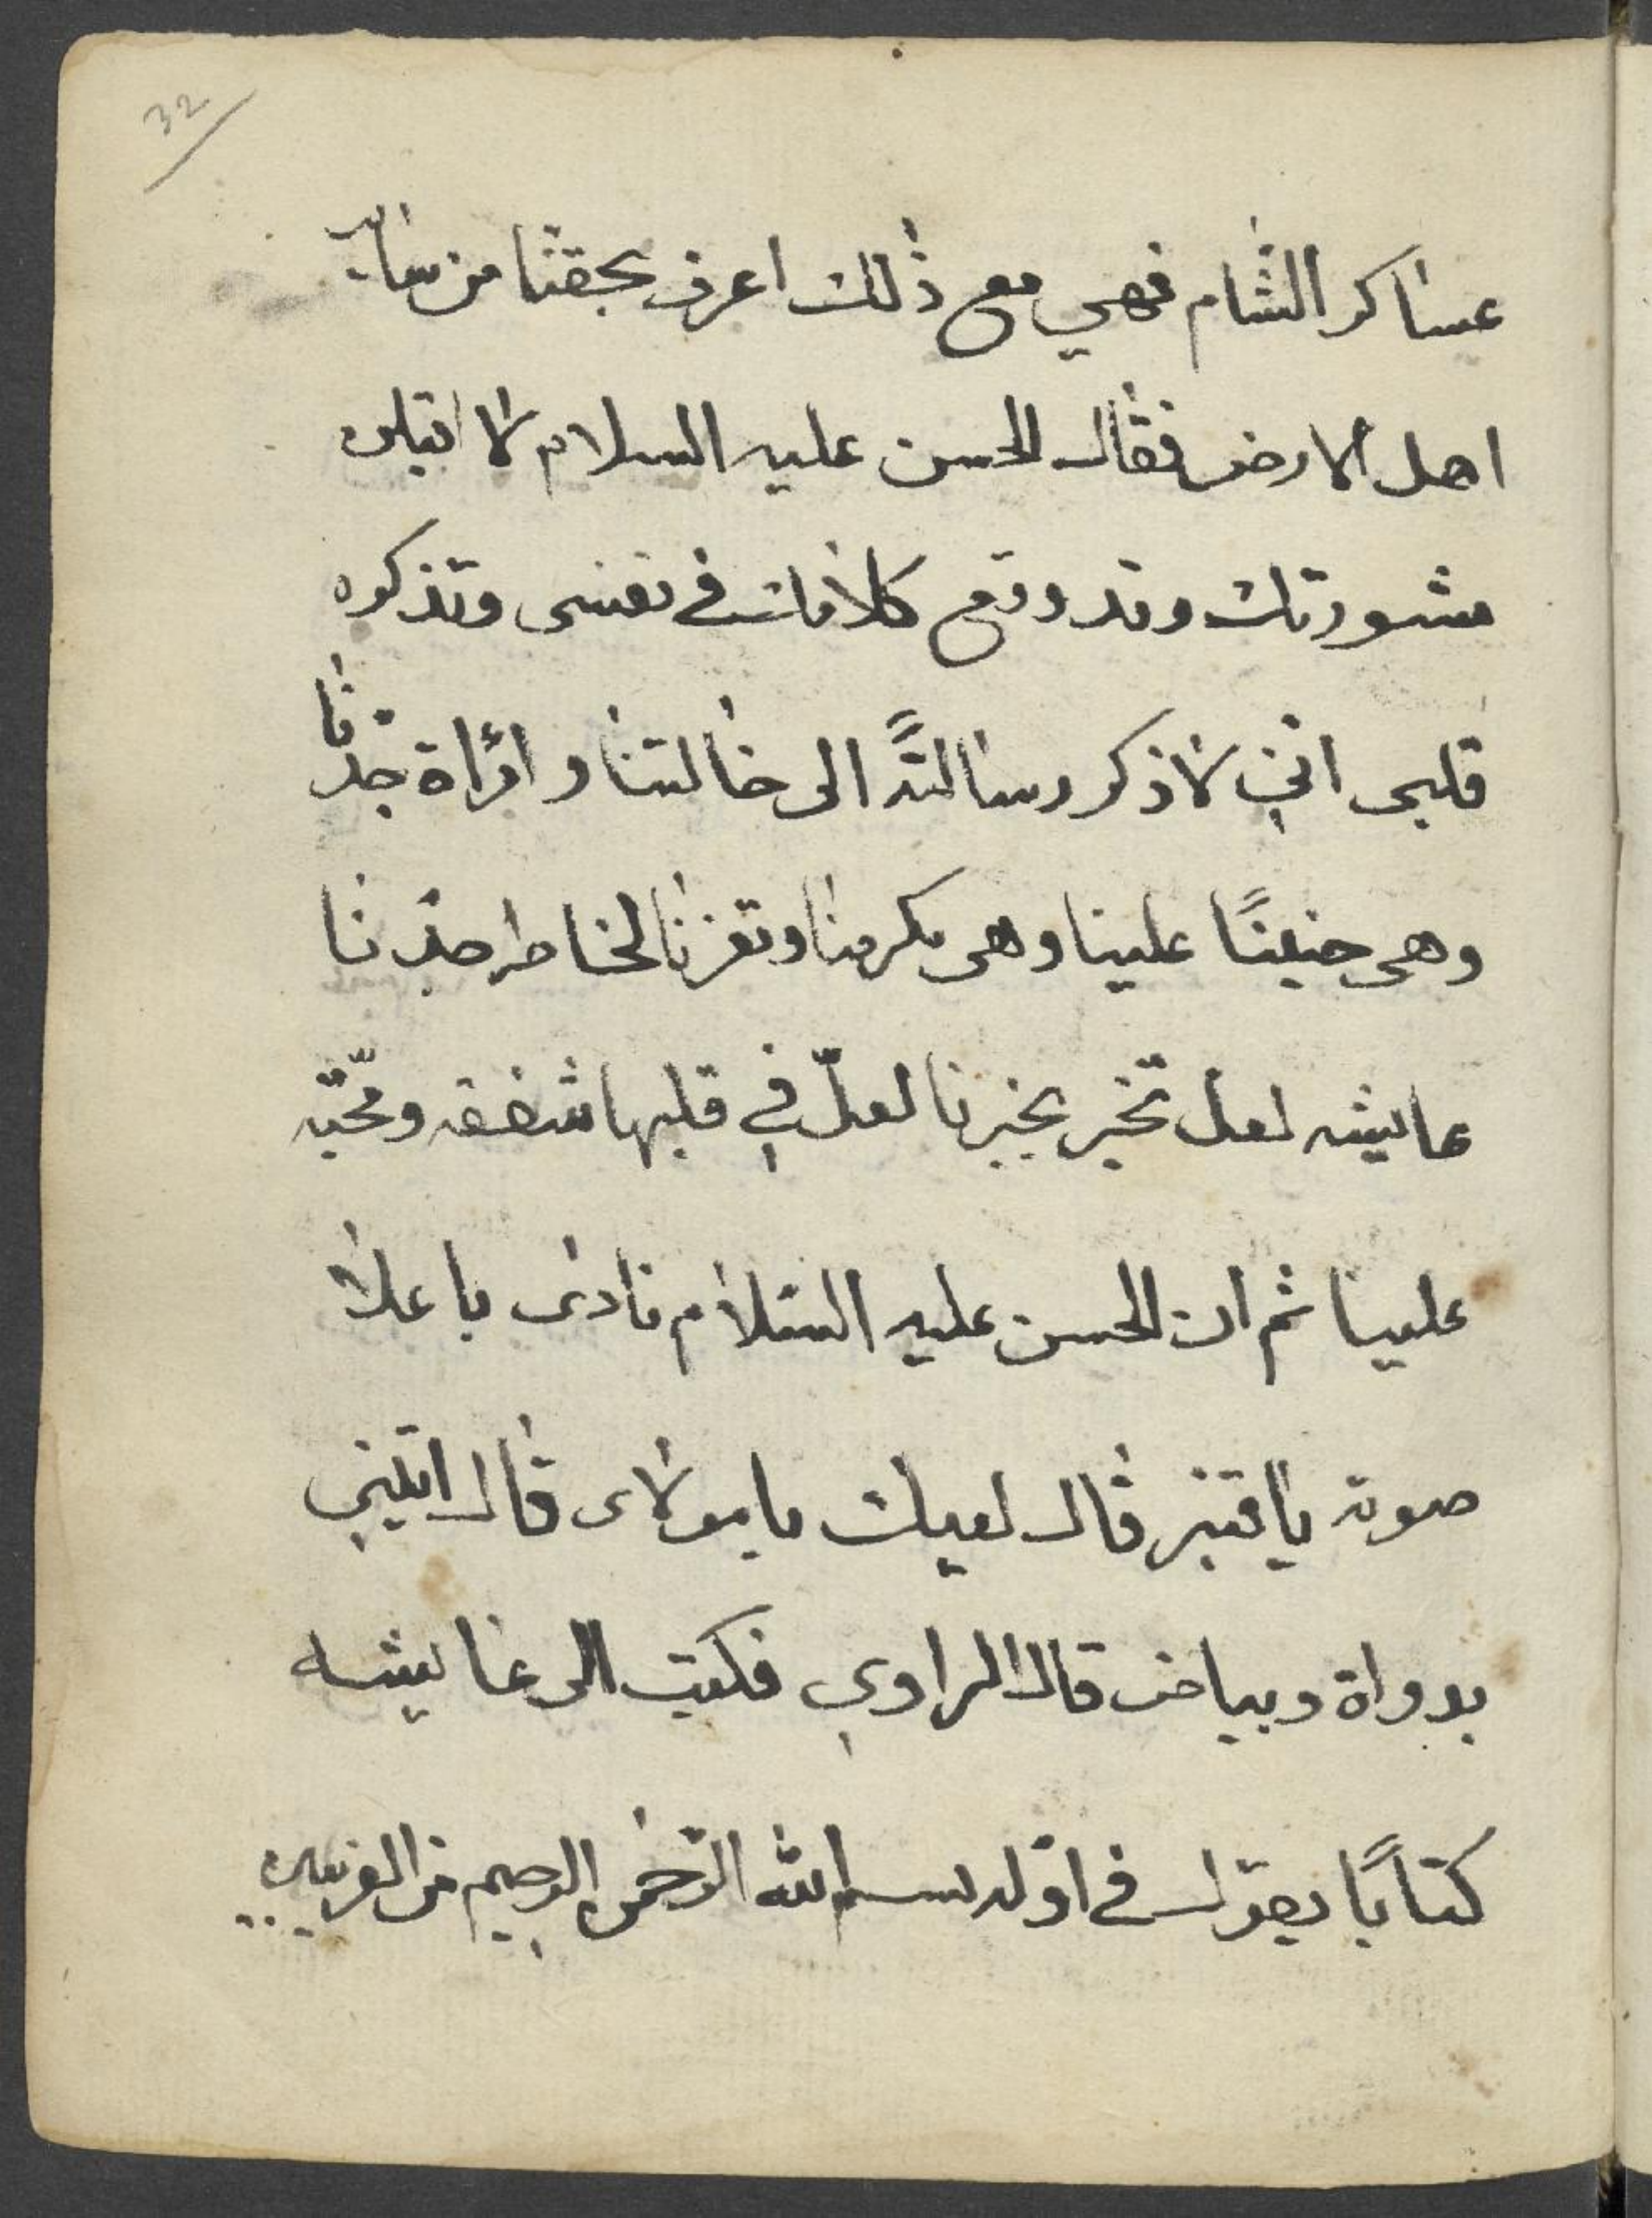 32
عساكر الشام فهي مع ذلك اعرف بحقنا من ساير
اهل الارض فقال الحسن عليه السلام لا اقبلن
مشورتك وقد وقع كلامك في نفسى وتذكره
قلبى انني لاذكر رسالةً الى خالتنا وامرأة جدّنا
وهى حنينًا علينا وهى مكرمنا وتعزنا لخاطر جدّنا
عايشه لعل تخبر بخبرنا لعلّ في قلبها شفقه ومحبّه
علينا ثم ان الحسن عليه السّلام نادى باعلا
صوته يا قنبر قال لبيك يا مولاى قال اتيني
بدواة وبياض قال الراوي فكتب الى عايشه
كتابًا يقول في اوّله بسم الله الرّحمن الرحيم من الغريبين